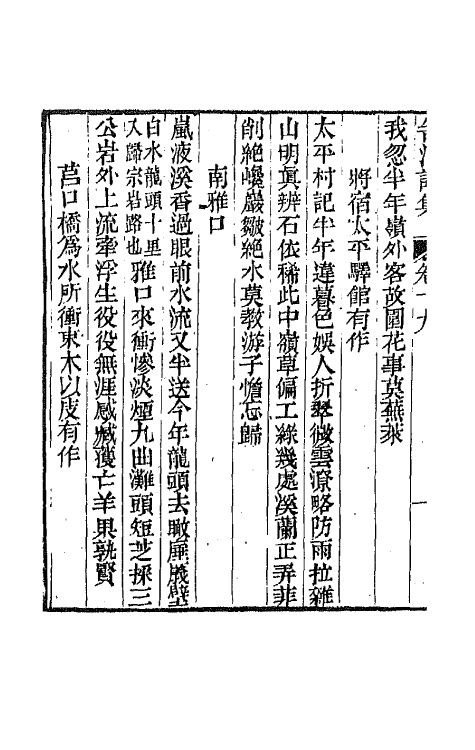 詩集 卷十九
我忽半年嶺外客故園花事莫蕪萊
將宿太平驛館有作
太平村記半年違暮色娛人折翠微雲潦略防雨拉雜
山明眞辨石依稀此中嶺草偏工綠幾處溪蘭正弄菲
削絕巉巖皺絕水莫教游子憺忘歸
南雅口
嵐液溪香過眼前水流又半送今年龍頭去瞰
白水龍頭十里
又歸宗岩路也
雅口來衝慘淡煙九曲灘頭短芝採三
公岩外上流牽浮生役役無涯感臧獲亡羊果孰賢
莒口橋爲水所衝束木以庋有作